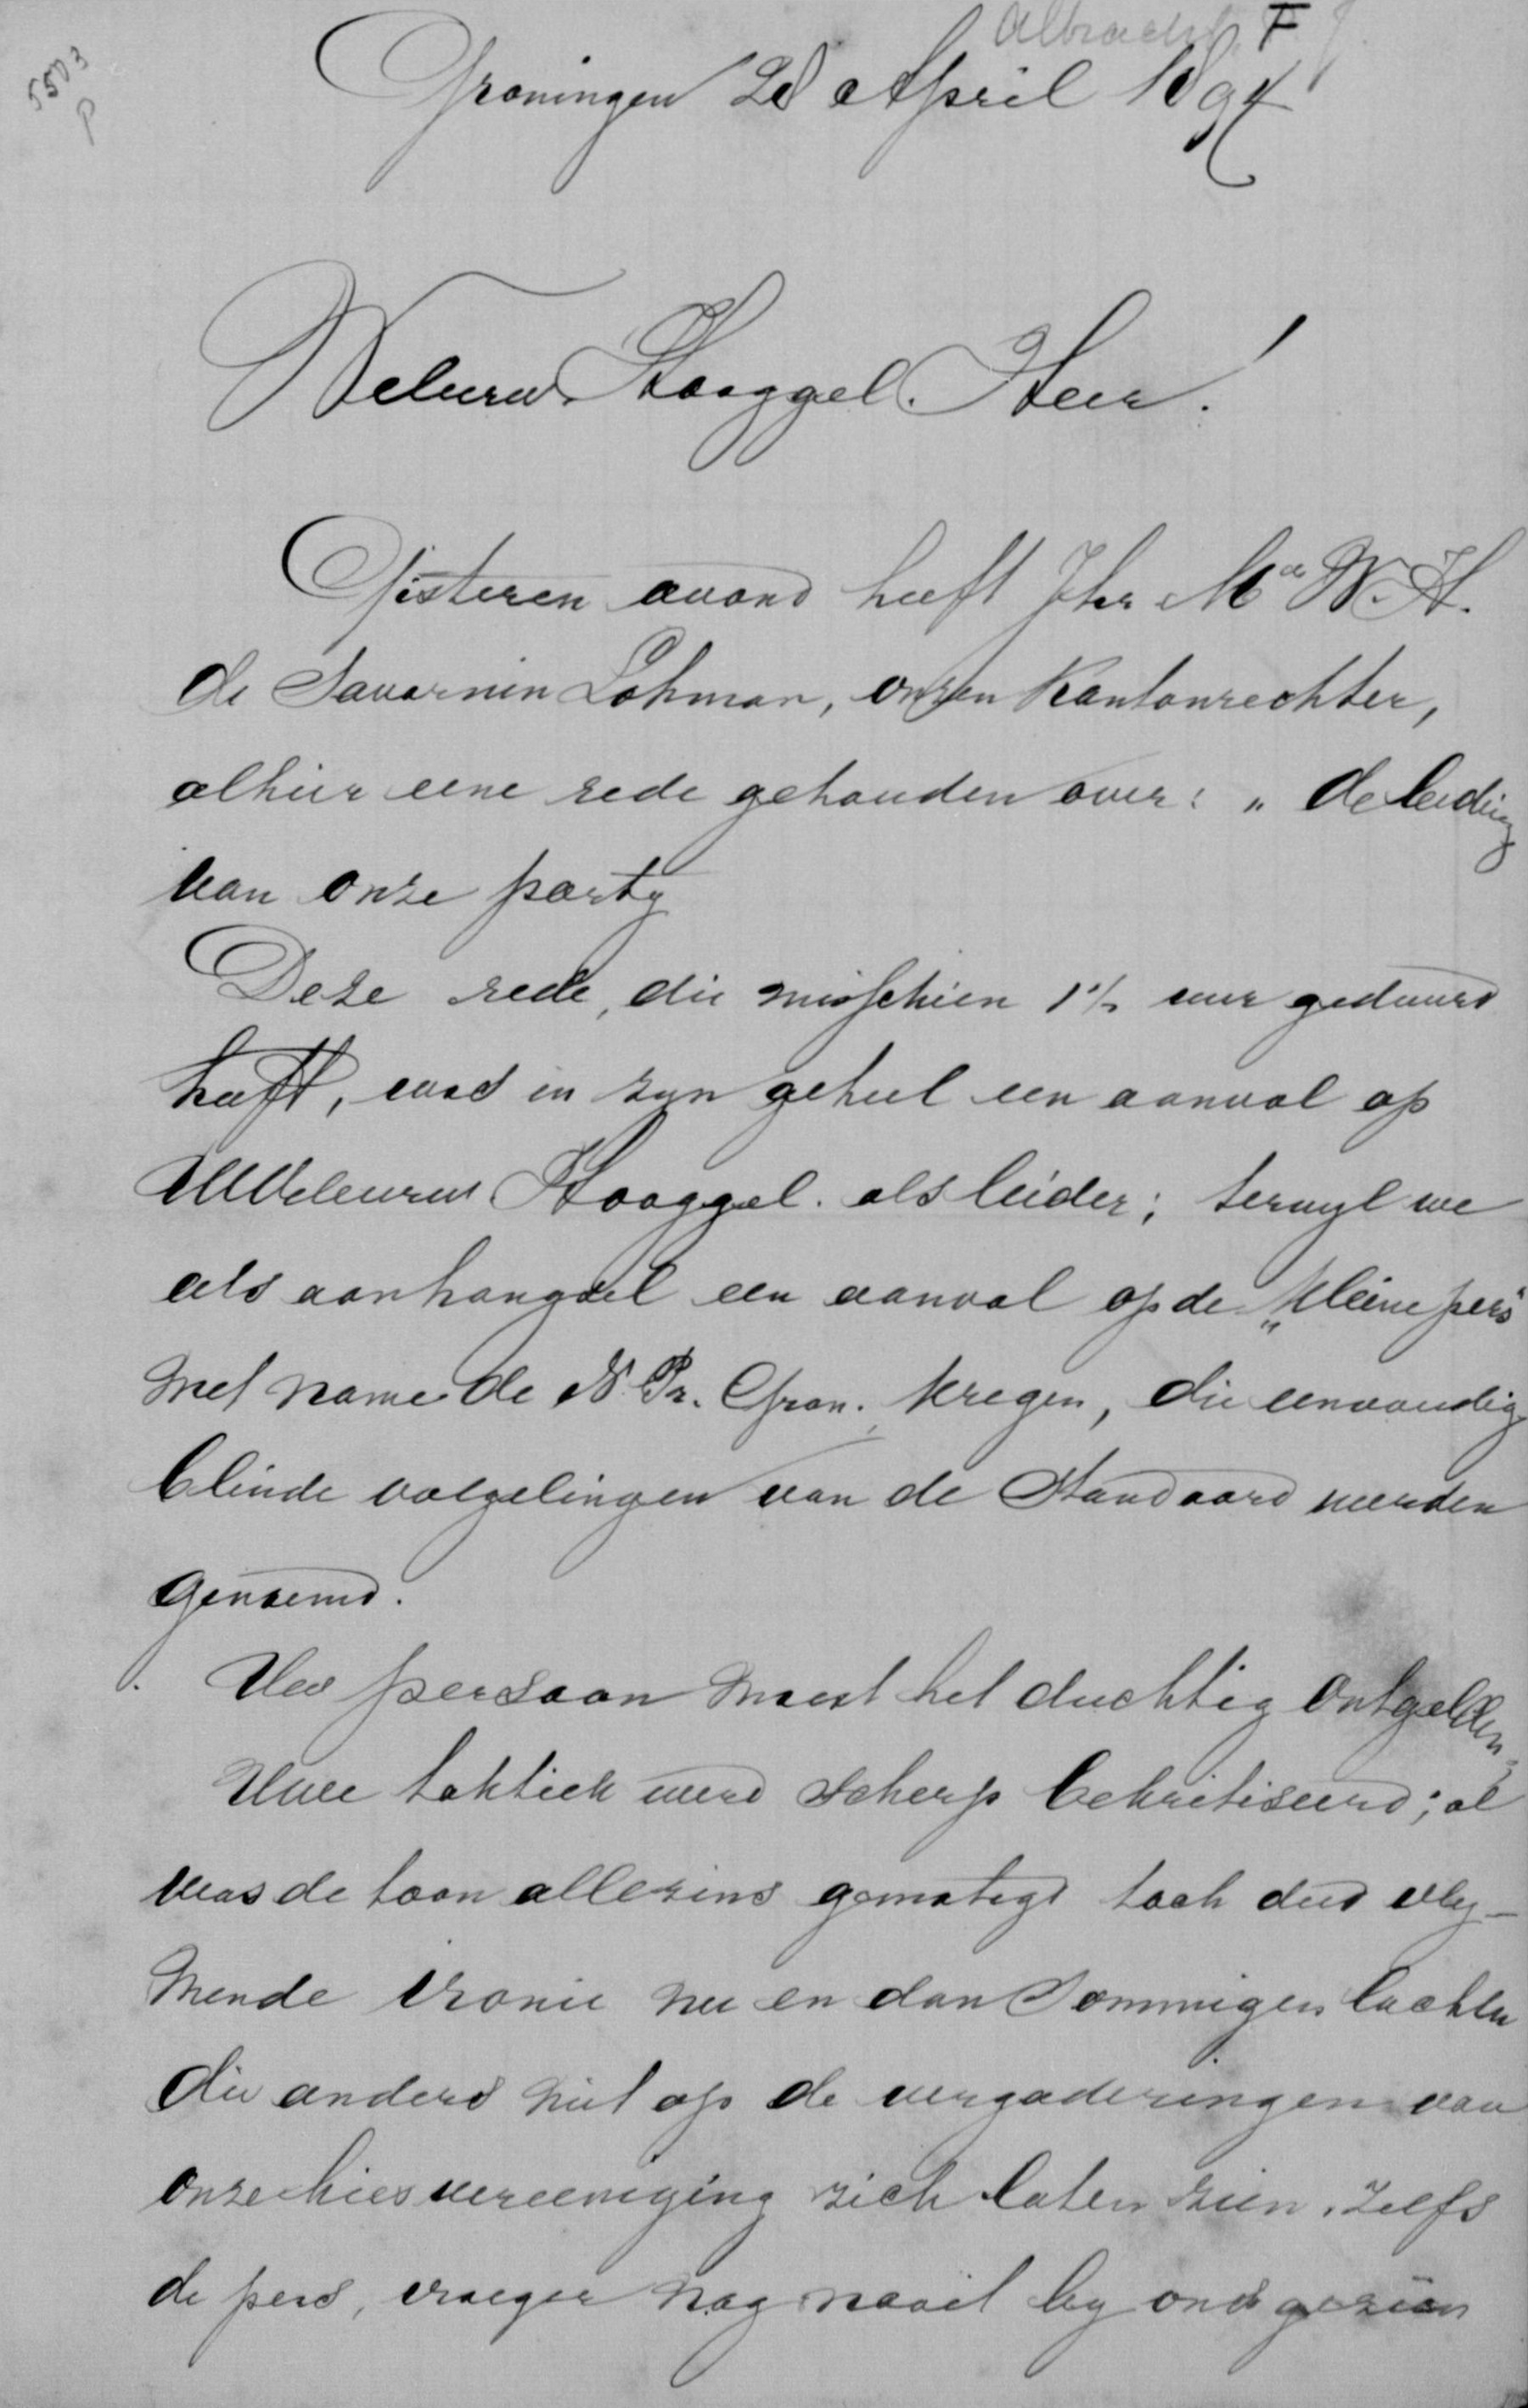 Albracht, F
5503
P
Groningen 28 April 1894
Weleerw. Hooggel. Heer!
Gisteren avond heeft Jhr Mr W. H.
de Savornin Lohman, onzen Kantonrechter,
alhier eene rede gehouden over: „de leiding
van onze party
Deze rede, die misschien 1½ uur geduurd
heeft, was in zyn geheel een aanval op
UWeleerw. Hooggel. als leider; terwyl we
als aanhangsel een aanval op de „kleine pers"
met name de N. Pr. Gron. kregen, die eenvoudig
blinde volgelingen van de Standaard werden
genoemd.
Uw persoon moest het duchtig ontgelden,
Uwe taktiek werd scherp bekritiseerd; al
was de toon allezins gematigd toch deed vly-
mende ironie nu en dan sommigen lachen
die anders niet op de vergaderingen van
onze kiesvereeniging zich laten zien. Zelfs
de pers, vroeger nog nooit by ons gezien